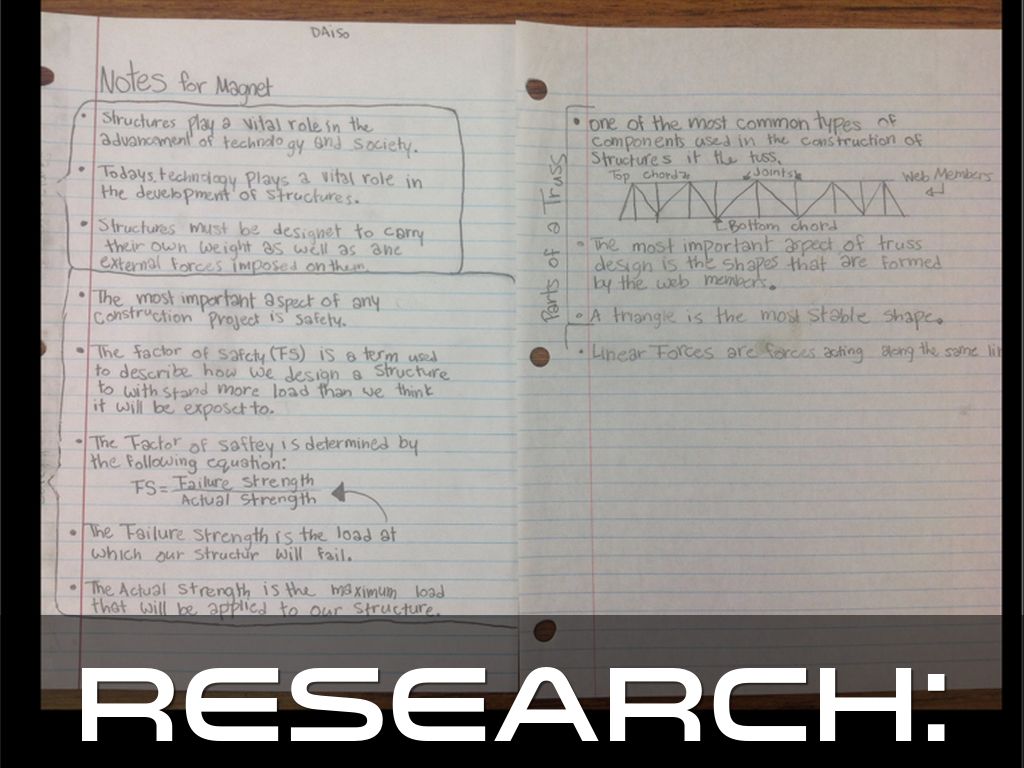 DAiso
Notes for Magnet
• Structures play a vital role in the
advancment of technology and society.
• Todays, technology plays a vital role in
the development of structures.
• Structures must be designet to carry
their own weight as well as ane
external forces imposed on them.
• The most important aspect of any
construction project is safety.
• The factor of safety (FS) is a term used
to describe how we design a structure
to withstand more load than we think
it will be exposet to.
• The Factor of saftey is determined by
the following equation:
FS= Failure strength
Actual strength
• The Failure strength is the load at
which our structur will fail.
• The Actual strength is the maximum load
that will be applied to our structure.
Parts of a Truss
• one of the most common types of
components used in the construction of
structures it the tuss.
Top chord Joints Web Members
Bottom chord
• The most important aspect of truss
design is the shapes that are formed
by the web members.
• A triangle is the most stable shape.
• Linear Forces are forces acting along the same lin
RESEARCH: